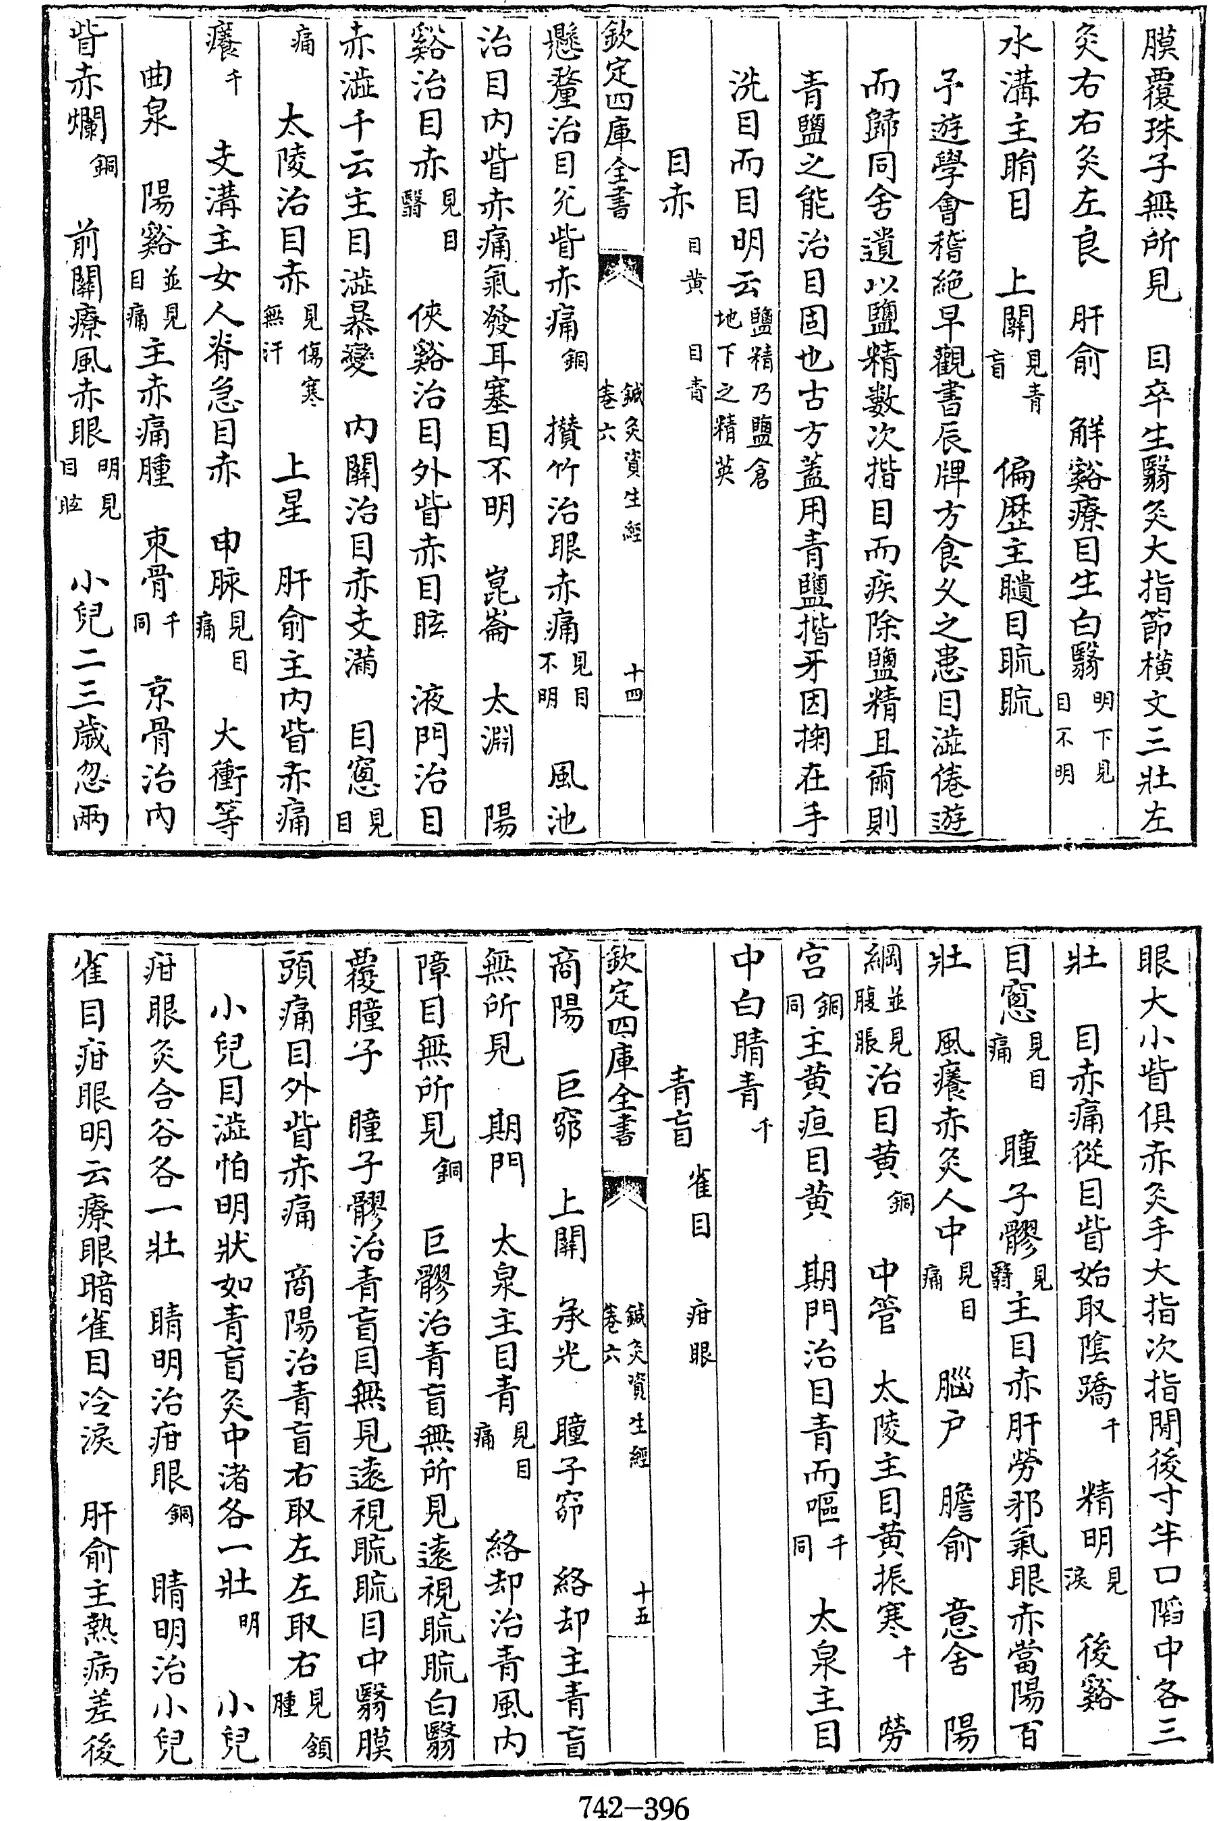 膜覆珠子無所見　目卒生翳灸大指節橫文三壯左
灸右右灸左良　肝俞　解谿療目生白翳明下見目不明
水溝主睊目　上關見青盲　偏歷主瞶目䀮䀮
予遊學會稽絶早觀書辰牌方食久之患目澁倦遊
而歸同舍遺以鹽精數次揩目而疾除鹽精且爾則
青鹽之能治目固也古方蓋用青鹽揩牙因掬在手
洗目而目明云鹽精乃鹽倉地下之精英
目赤目黄　目青
欽定四庫全書　鍼灸資生經卷六　十四
懸釐治目兊眥赤痛銅　攅竹治眼赤痛見目不明　風池
治目内眥赤痛氣發耳塞目不明　崑崙　太淵　陽
谿治目赤見目翳　俠谿治目外眥赤目眩　液門治目
赤澁千云主目澁暴變　内關治目赤支滿　目窻見目
痛　太陵治目赤見傷寒無汗　上星　肝俞主内眥赤痛
癢千　支溝主女人脊急目赤　申脉見目痛　大衝等
曲泉　陽谿並見目痛主赤痛腫　束骨千同　京骨治内
眥赤爛銅　前關療風赤眼明見目眩　小兒二三歳忽兩
眼大小眥俱赤灸手大指次指間後寸半口䧟中各三
壯　目赤痛從目眥始取陰蹻千　精明見淚　後谿
目窻見目痛　瞳子髎見翳主目赤肝勞邪氣眼赤當陽百
壯　風癢赤灸人中見目痛　腦户　膽俞　意舍　陽
綱並見腹脹治目黄銅　中管　太陵主目黄振寒千　勞
宫銅同主黄疸目黄　期門治目青而嘔千同　太泉主目
中白睛青千
青盲　雀目　疳眼
欽定四庫全書　鍼灸資生經卷六　十五
商陽　巨窌　上關　承光　瞳子窌　絡却主青盲
無所見　期門　太泉主目青見目痛　絡却治青風内
障目無所見銅　巨髎治青盲無所見遠視䀮䀮白翳
覆瞳子　瞳子髎治青盲目無見遠視䀮䀮目中翳膜
頭痛目外眥赤痛　商陽治青盲右取左左取右見頷腫
小兒目澁怕明狀如青盲灸中渚各一壯明　小兒
疳眼灸合谷各一壯　睛明治疳眼銅　睛明治小兒
雀目疳眼明云療眼暗雀目冷淚　肝俞主熱病差後
742-396